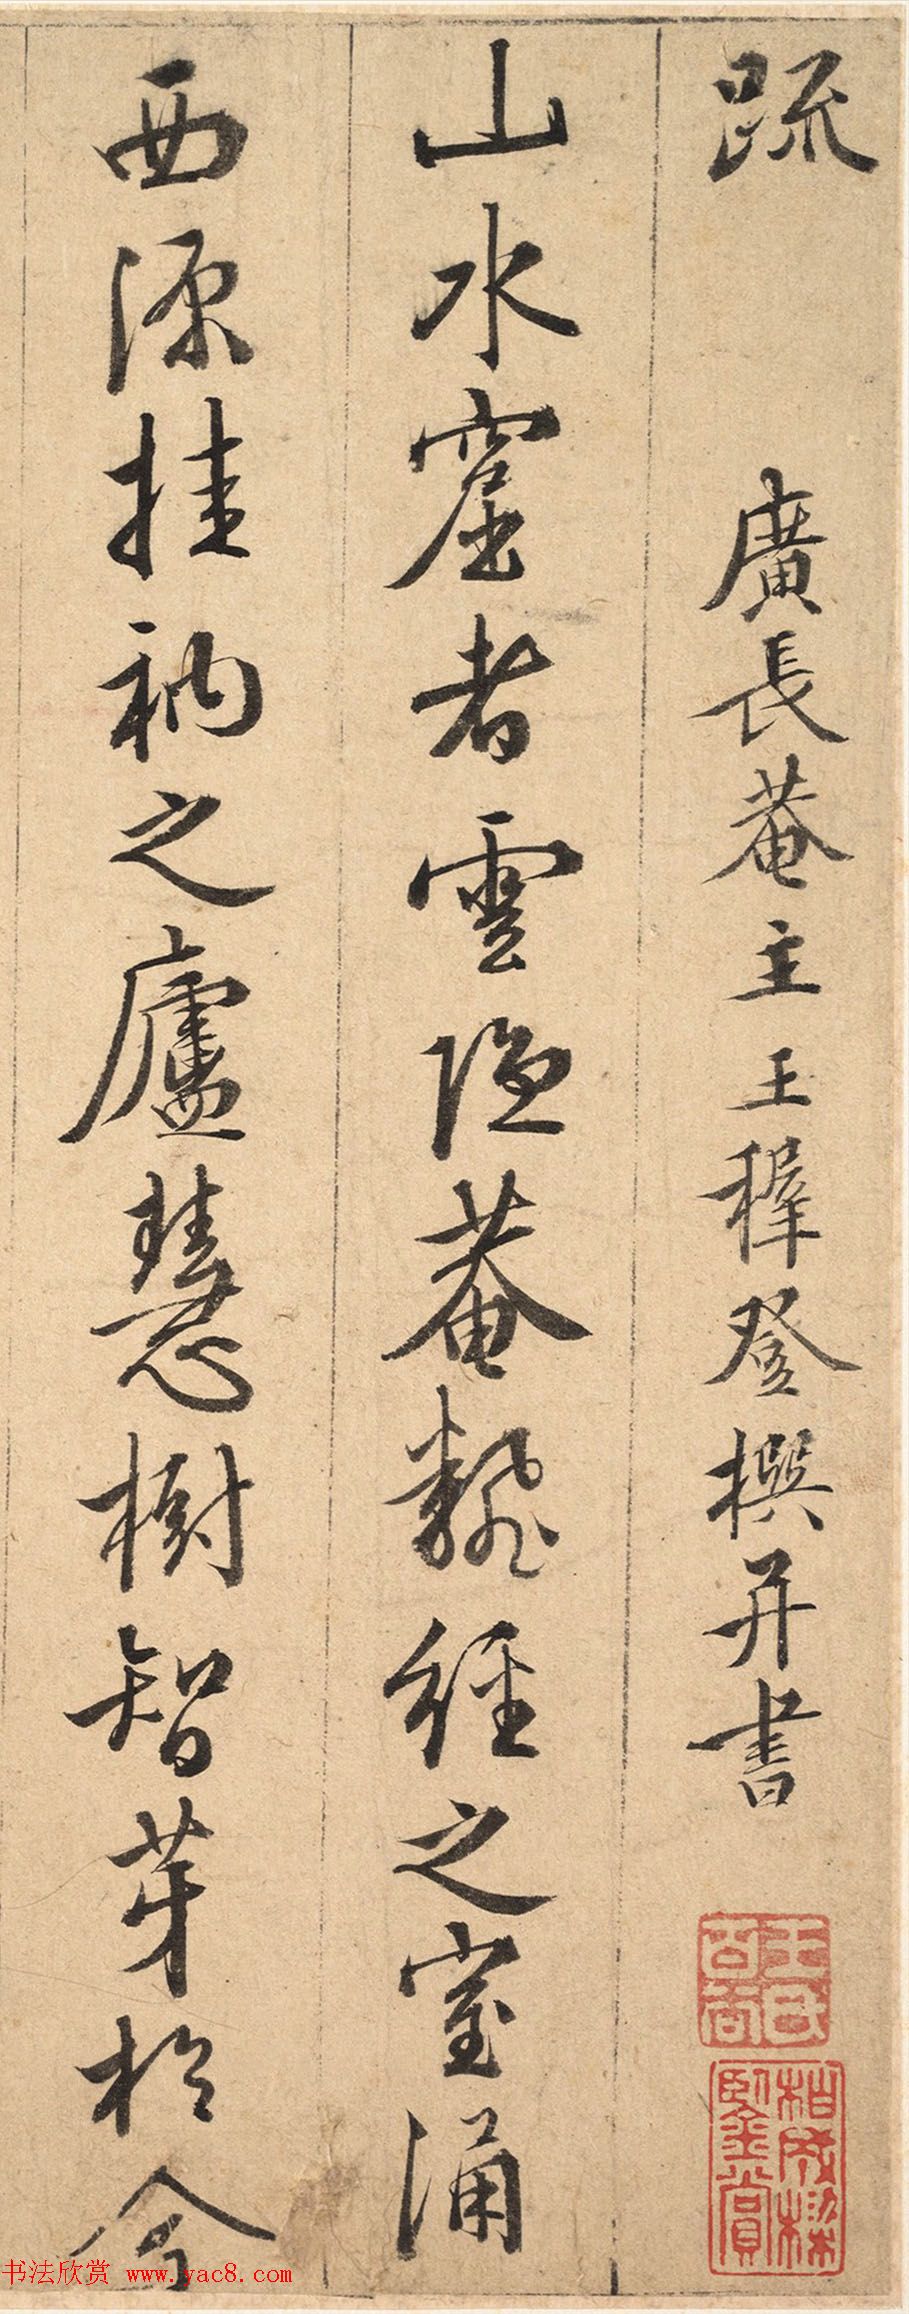 疏 廣長菴主王穉登撰并書
山水窟者雲隐菴翻經之室涌
西源挂衲之廬慧樹智芽於今
书法欣赏 www.yac8.com